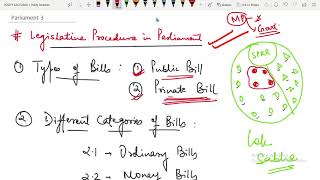 Parliament 3
# Legislative Procedure in Parliament
MP
Govt
① Types of Bills: ① Public Bill
② Private Bill
SPKR
② Different Categories of Bills:
Lok
Sabha
2.1 → Ordinary Bills
2.2 → Money Bills